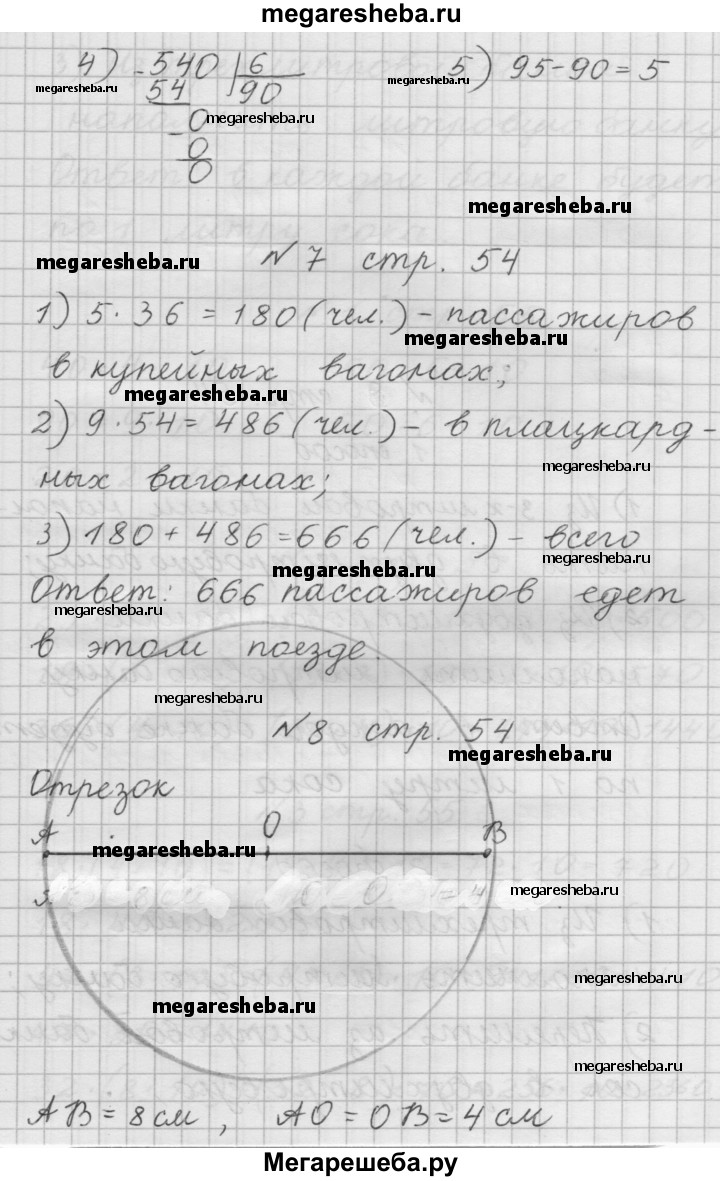 megaresheba.ru
4) -540 | 6      5) 95-90=5
54   90
megaresheba.ru megaresheba.ru
-0 megaresheba.ru
0
0
megaresheba.ru
megaresheba.ru N 7 стр. 54
1) 5·36=180(чел.)- пассажиров
megaresheba.ru
в купейных вагонах;
megaresheba.ru
2) 9·54=486(чел.)- в плацкард-
megaresheba.ru
ных вагонах;
3) 180+486=666(чел.)- всего
megaresheba.ru
megaresheba.ru
Ответ: 666 пассажиров едет
megaresheba.ru
в этом поезде.
megaresheba.ru
N 8 стр. 54
megaresheba.ru
Отрезок
A O B
megaresheba.ru
megaresheba.ru
megaresheba.ru
megaresheba.ru
megaresheba.ru
AB=8см, AO=OB=4см
Мегарешеба.ру